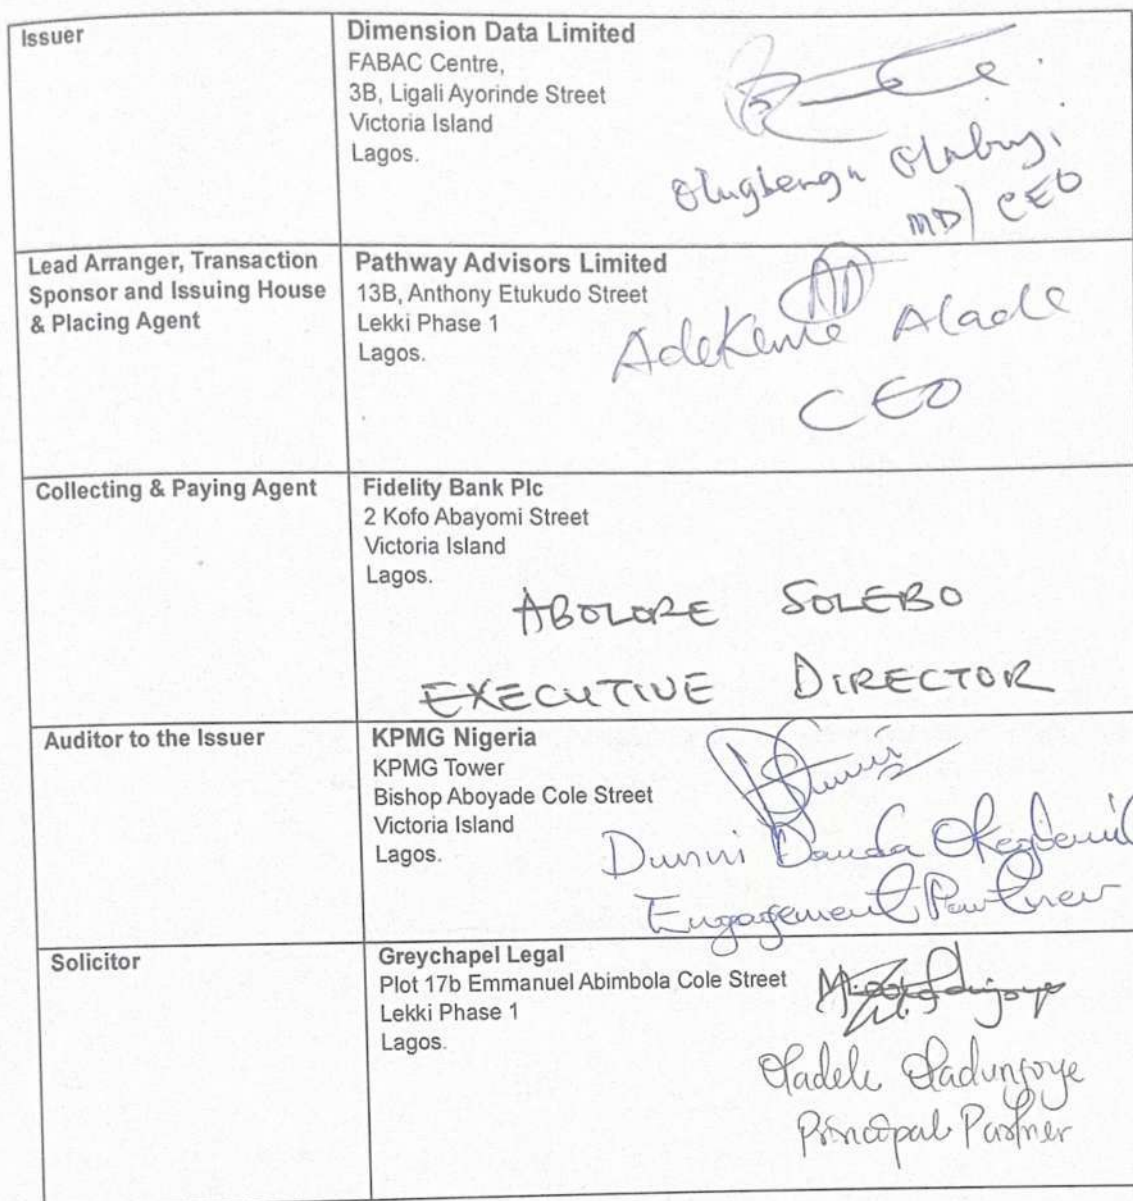 Issuer
Dimension Data Limited
FABAC Centre,
3B, Ligali Ayorinde Street
Victoria Island
Lagos.
Olugbenga Olabiyi
MD/ CEO
Lead Arranger, Transaction
Sponsor and Issuing House
& Placing Agent
Pathway Advisors Limited
13B, Anthony Etukudo Street
Lekki Phase 1
Lagos.
Adekunle Alade
CEO
Collecting & Paying Agent
Fidelity Bank Plc
2 Kofo Abayomi Street
Victoria Island
Lagos.
ABOLORE SOLEBO
EXECUTIVE DIRECTOR
Auditor to the Issuer
KPMG Nigeria
KPMG Tower
Bishop Aboyade Cole Street
Victoria Island
Lagos.
Dunni Dauda
Engagement Partner
Solicitor
Greychapel Legal
Plot 17b Emmanuel Abimbola Cole Street
Lekki Phase 1
Lagos.
Oladele Oladunjoye
Principal Partner